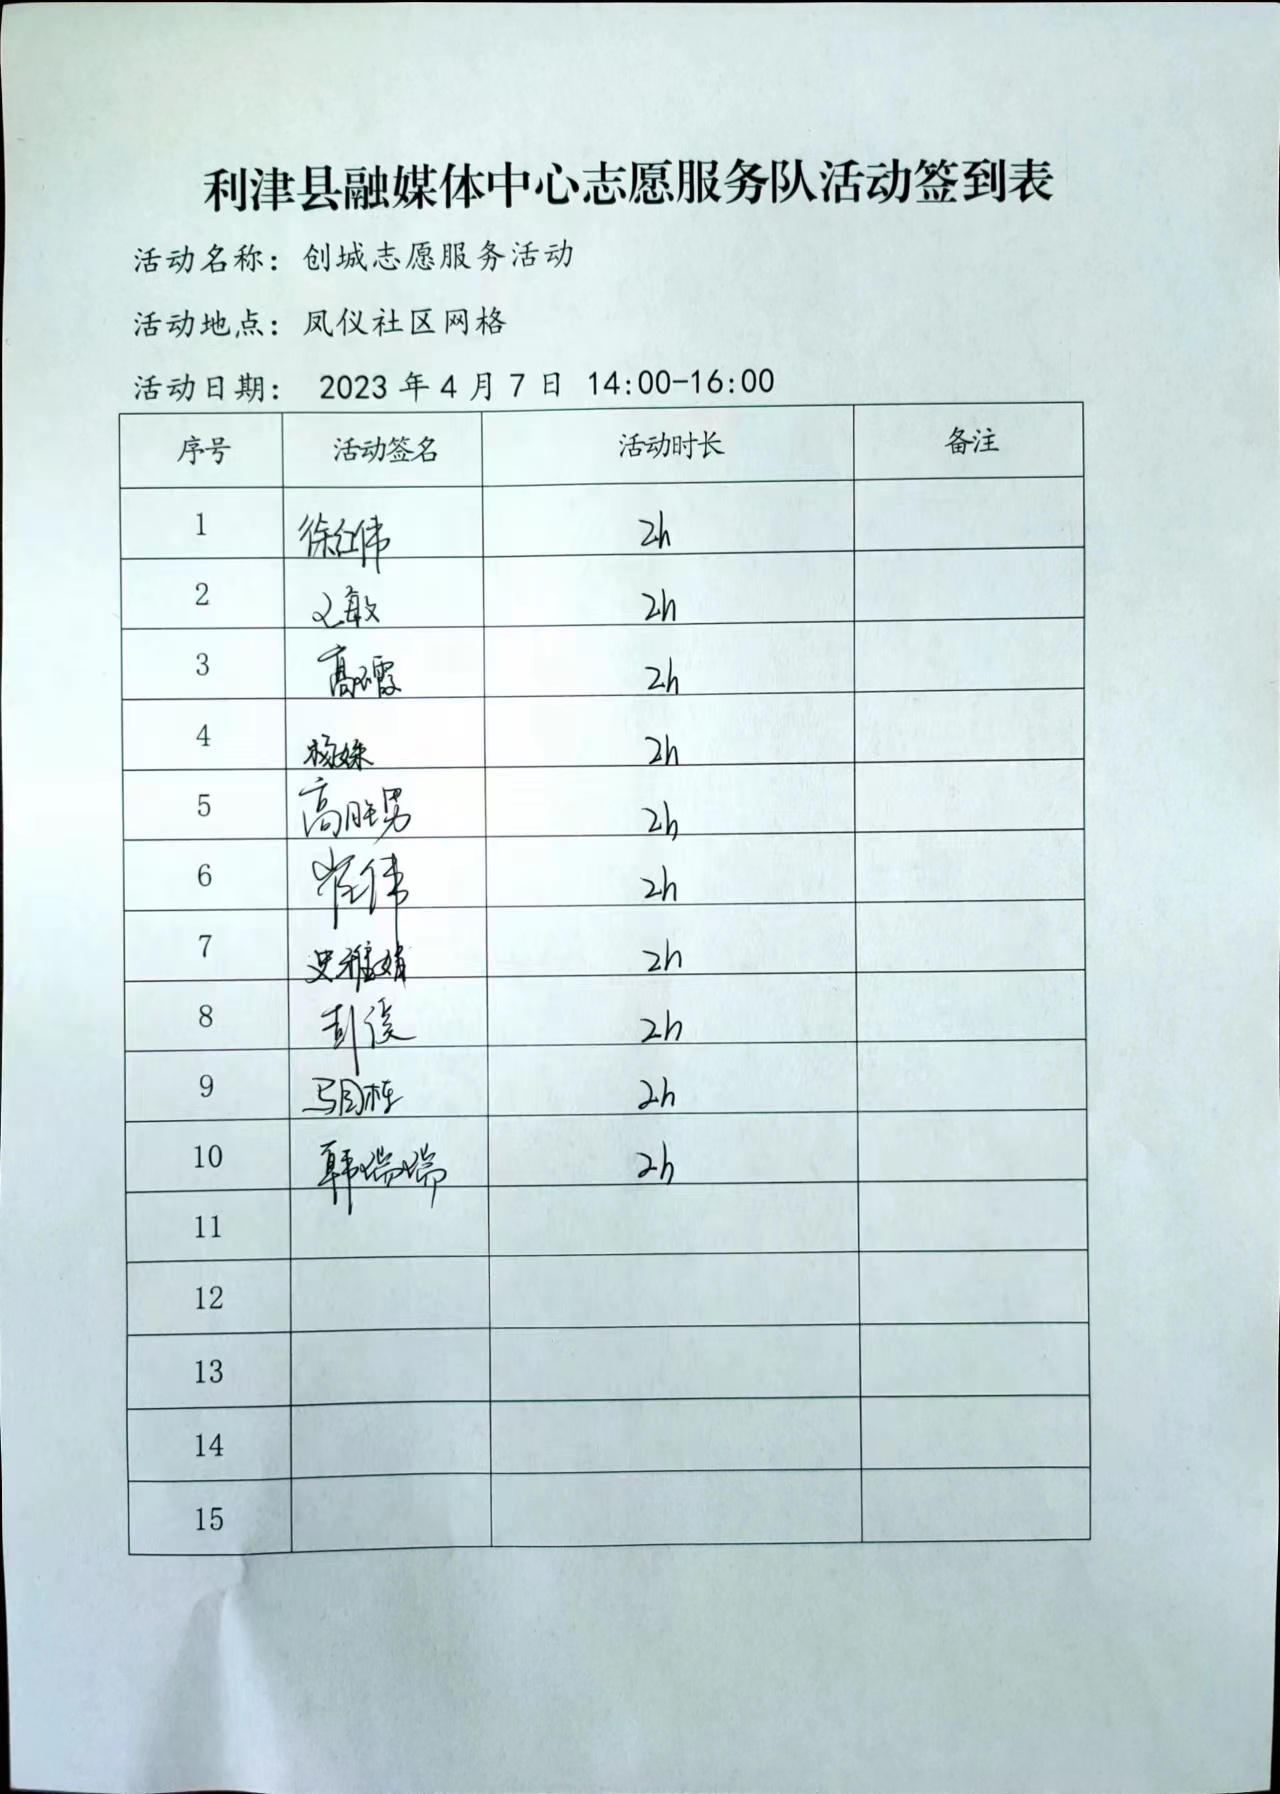 利津县融媒体中心志愿服务队活动签到表
活动名称：创城志愿服务活动
活动地点：凤仪社区网格
活动日期： 2023 年 4 月 7 日 14:00-16:00
序号 活动签名 活动时长 备注
1 徐红伟 2h
2 敏 2h
3 高霞 2h
4 杨姝 2h
5 高胜男 2h
6 崔伟 2h
7 史雅婧 2h
8 彭 2h
9 马国栋 2h
10 韩瑞瑞 2h
11
12
13
14
15